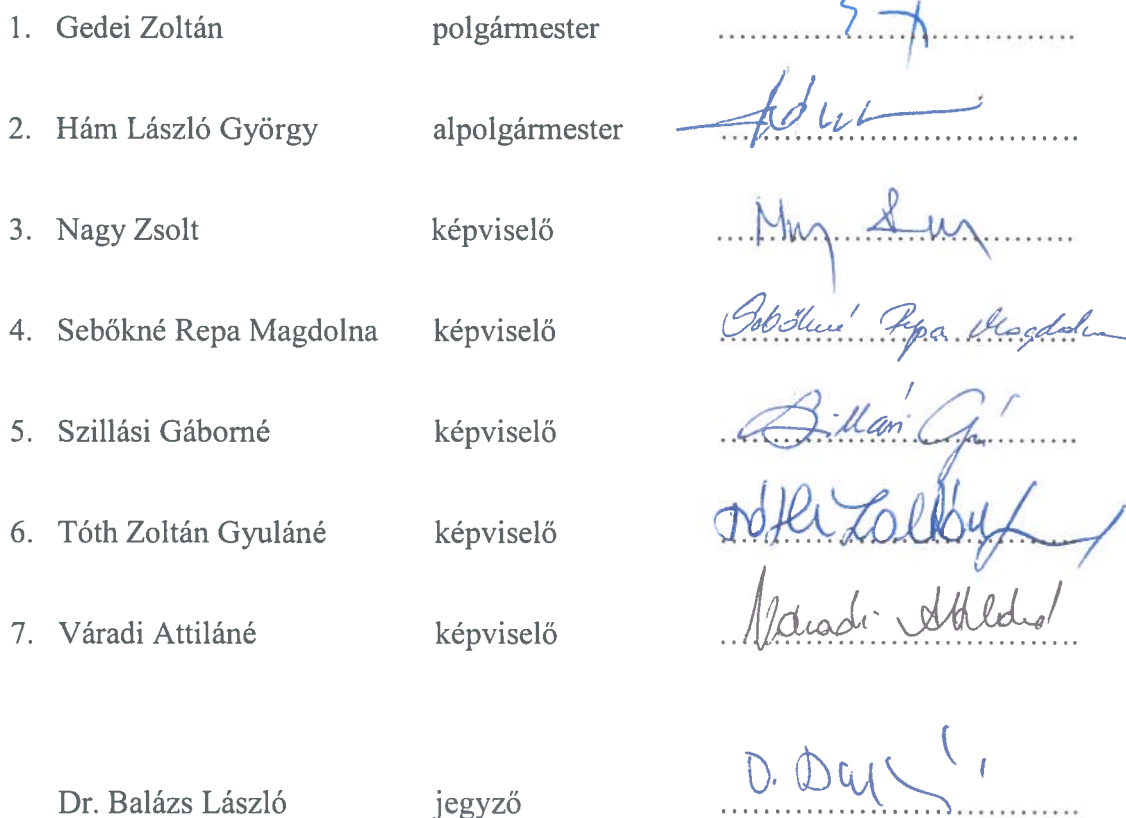 1. Gedei Zoltán polgármester
2. Hám László György alpolgármester
3. Nagy Zsolt képviselő
4. Sebőkné Repa Magdolna képviselő Sebőkné Repa Magdolna
5. Szillási Gáborné képviselő
6. Tóth Zoltán Gyuláné képviselő
7. Váradi Attiláné képviselő Váradi Attiláné
Dr. Balázs László jegyző